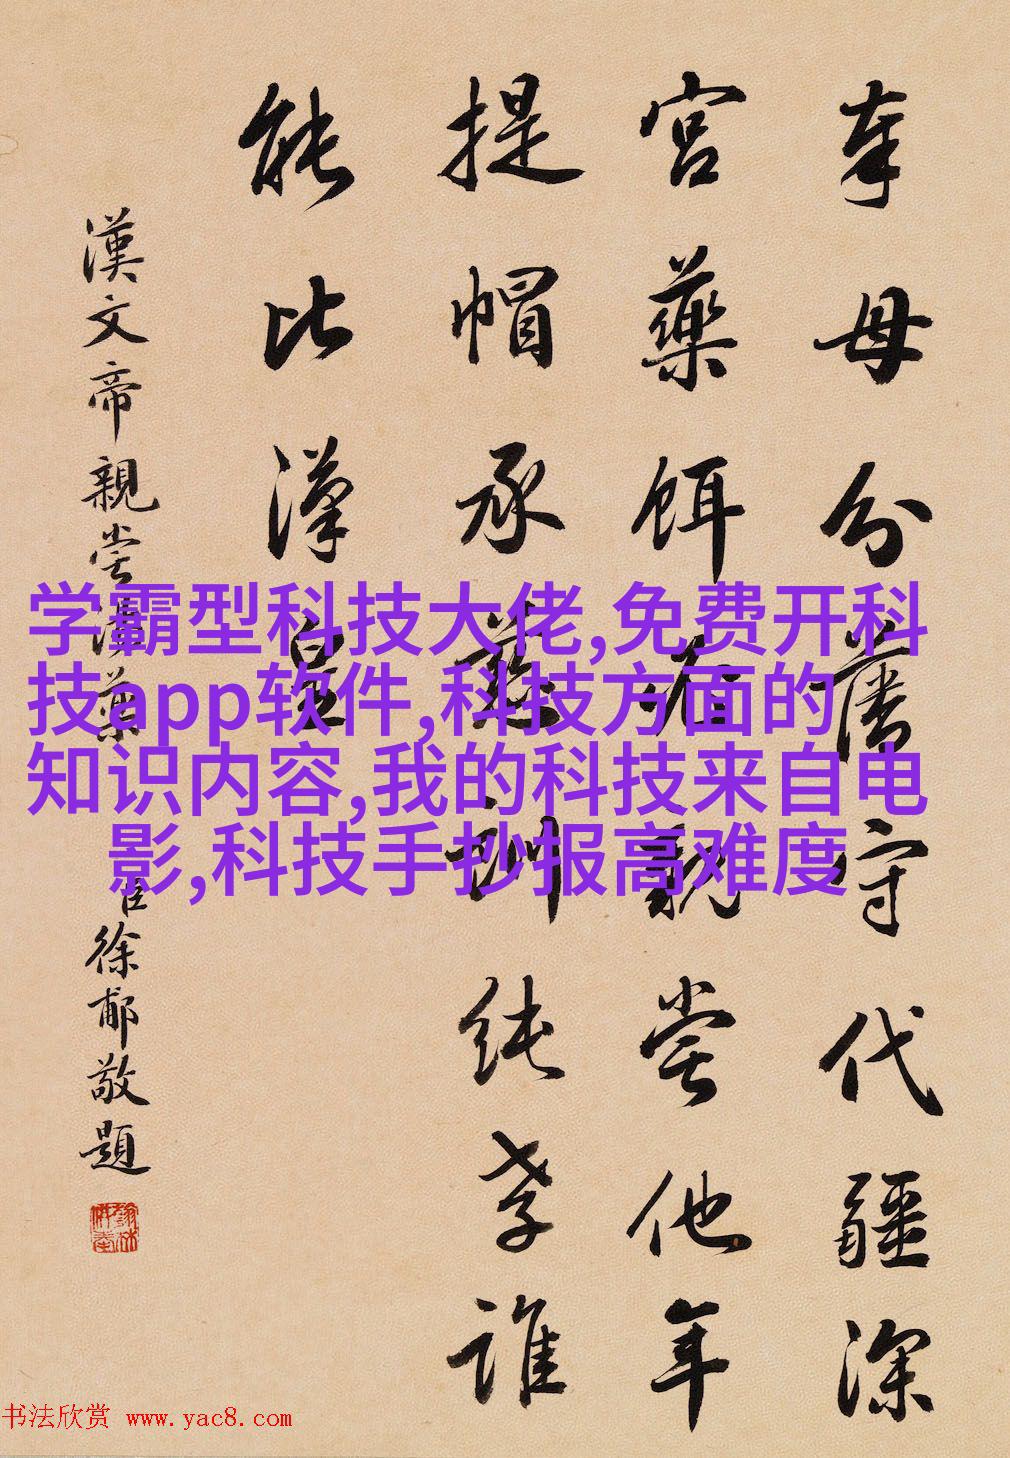 奉母分藩守代疆深
宮藥餌親嘗他年
提帽承慈訓純孝誰
能比漢皇
漢文帝親嘗湯藥
臣徐郙敬題
学霸型科技大佬,免费开科
技app软件,科技方面的
知识内容,我的科技来自电
影,科技手抄报高难度
书法欣赏 www.yac8.com